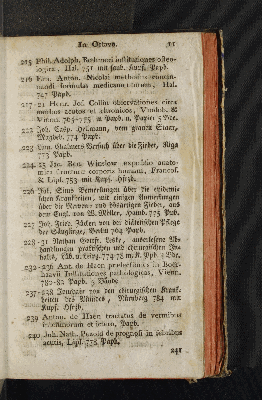 In Octavo. 11
215 Phil. Adolph. Boehmeri institutiones osteo-
logicae, Hal. 751 mit saub. Kupf. Papb.
216 Ern. Anton. Nicolai methodus concin-
nandi formulas medicamentorum, Hal.
747 Papb.
217-21 Henr. Jos. Collin observationes circa
morbos acutos et chronicos, Vindob. &
Vienn. Papb. u. Papier 5 Bde.
222 Joh. Casp. Hellmann, vom grauen Staar,
Magdeb. 774 Papb.
223 Lion. Chalmers Versuch über die Fieber, Riga
773 Papb.
224-25 Jac. Ben. Winslow expositio anato-
mica structurae corporis humani, Francof.
& Lips. 753 mit Kupf. Hfrzb.
226 Joh. Sims Bemerkungen über die epidemi-
schen Krankheiten, mit einigen Anmerkungen
über die Nerven- und bösartigen Fieber, aus
dem Engl. von W. Möller, Hamb. 775 Pub.
227 Joh. Fried. Zückert von der diätetischen Pflege
der Säuglinge, Berlin 764 Papb.
228-31 Nathan Gottfr. Leske, auserlesene Ab-
handlungen praktischen und chirurgischen In-
halts, Lüb. u. Leipz. 774-78 m. K. Ppb. 4 Bde.
232-236 Ant. de Haen praelectiones in Boer-
haavii Institutiones pathologicas, Vienn.
780-82 Papb. 5 Bände
237-238 Jourdain von den chirurgischen Krank-
heiten des Mundes, Nürnberg 784 mit
Kupf. Hfrzb.
239 Anton. de Haen tractatus de vermibus
intestinorum et ictero, Papb.
240 Joh. Nath. Pezold de prognosi in febribus
acutis, Lips. 778 Papb.
241